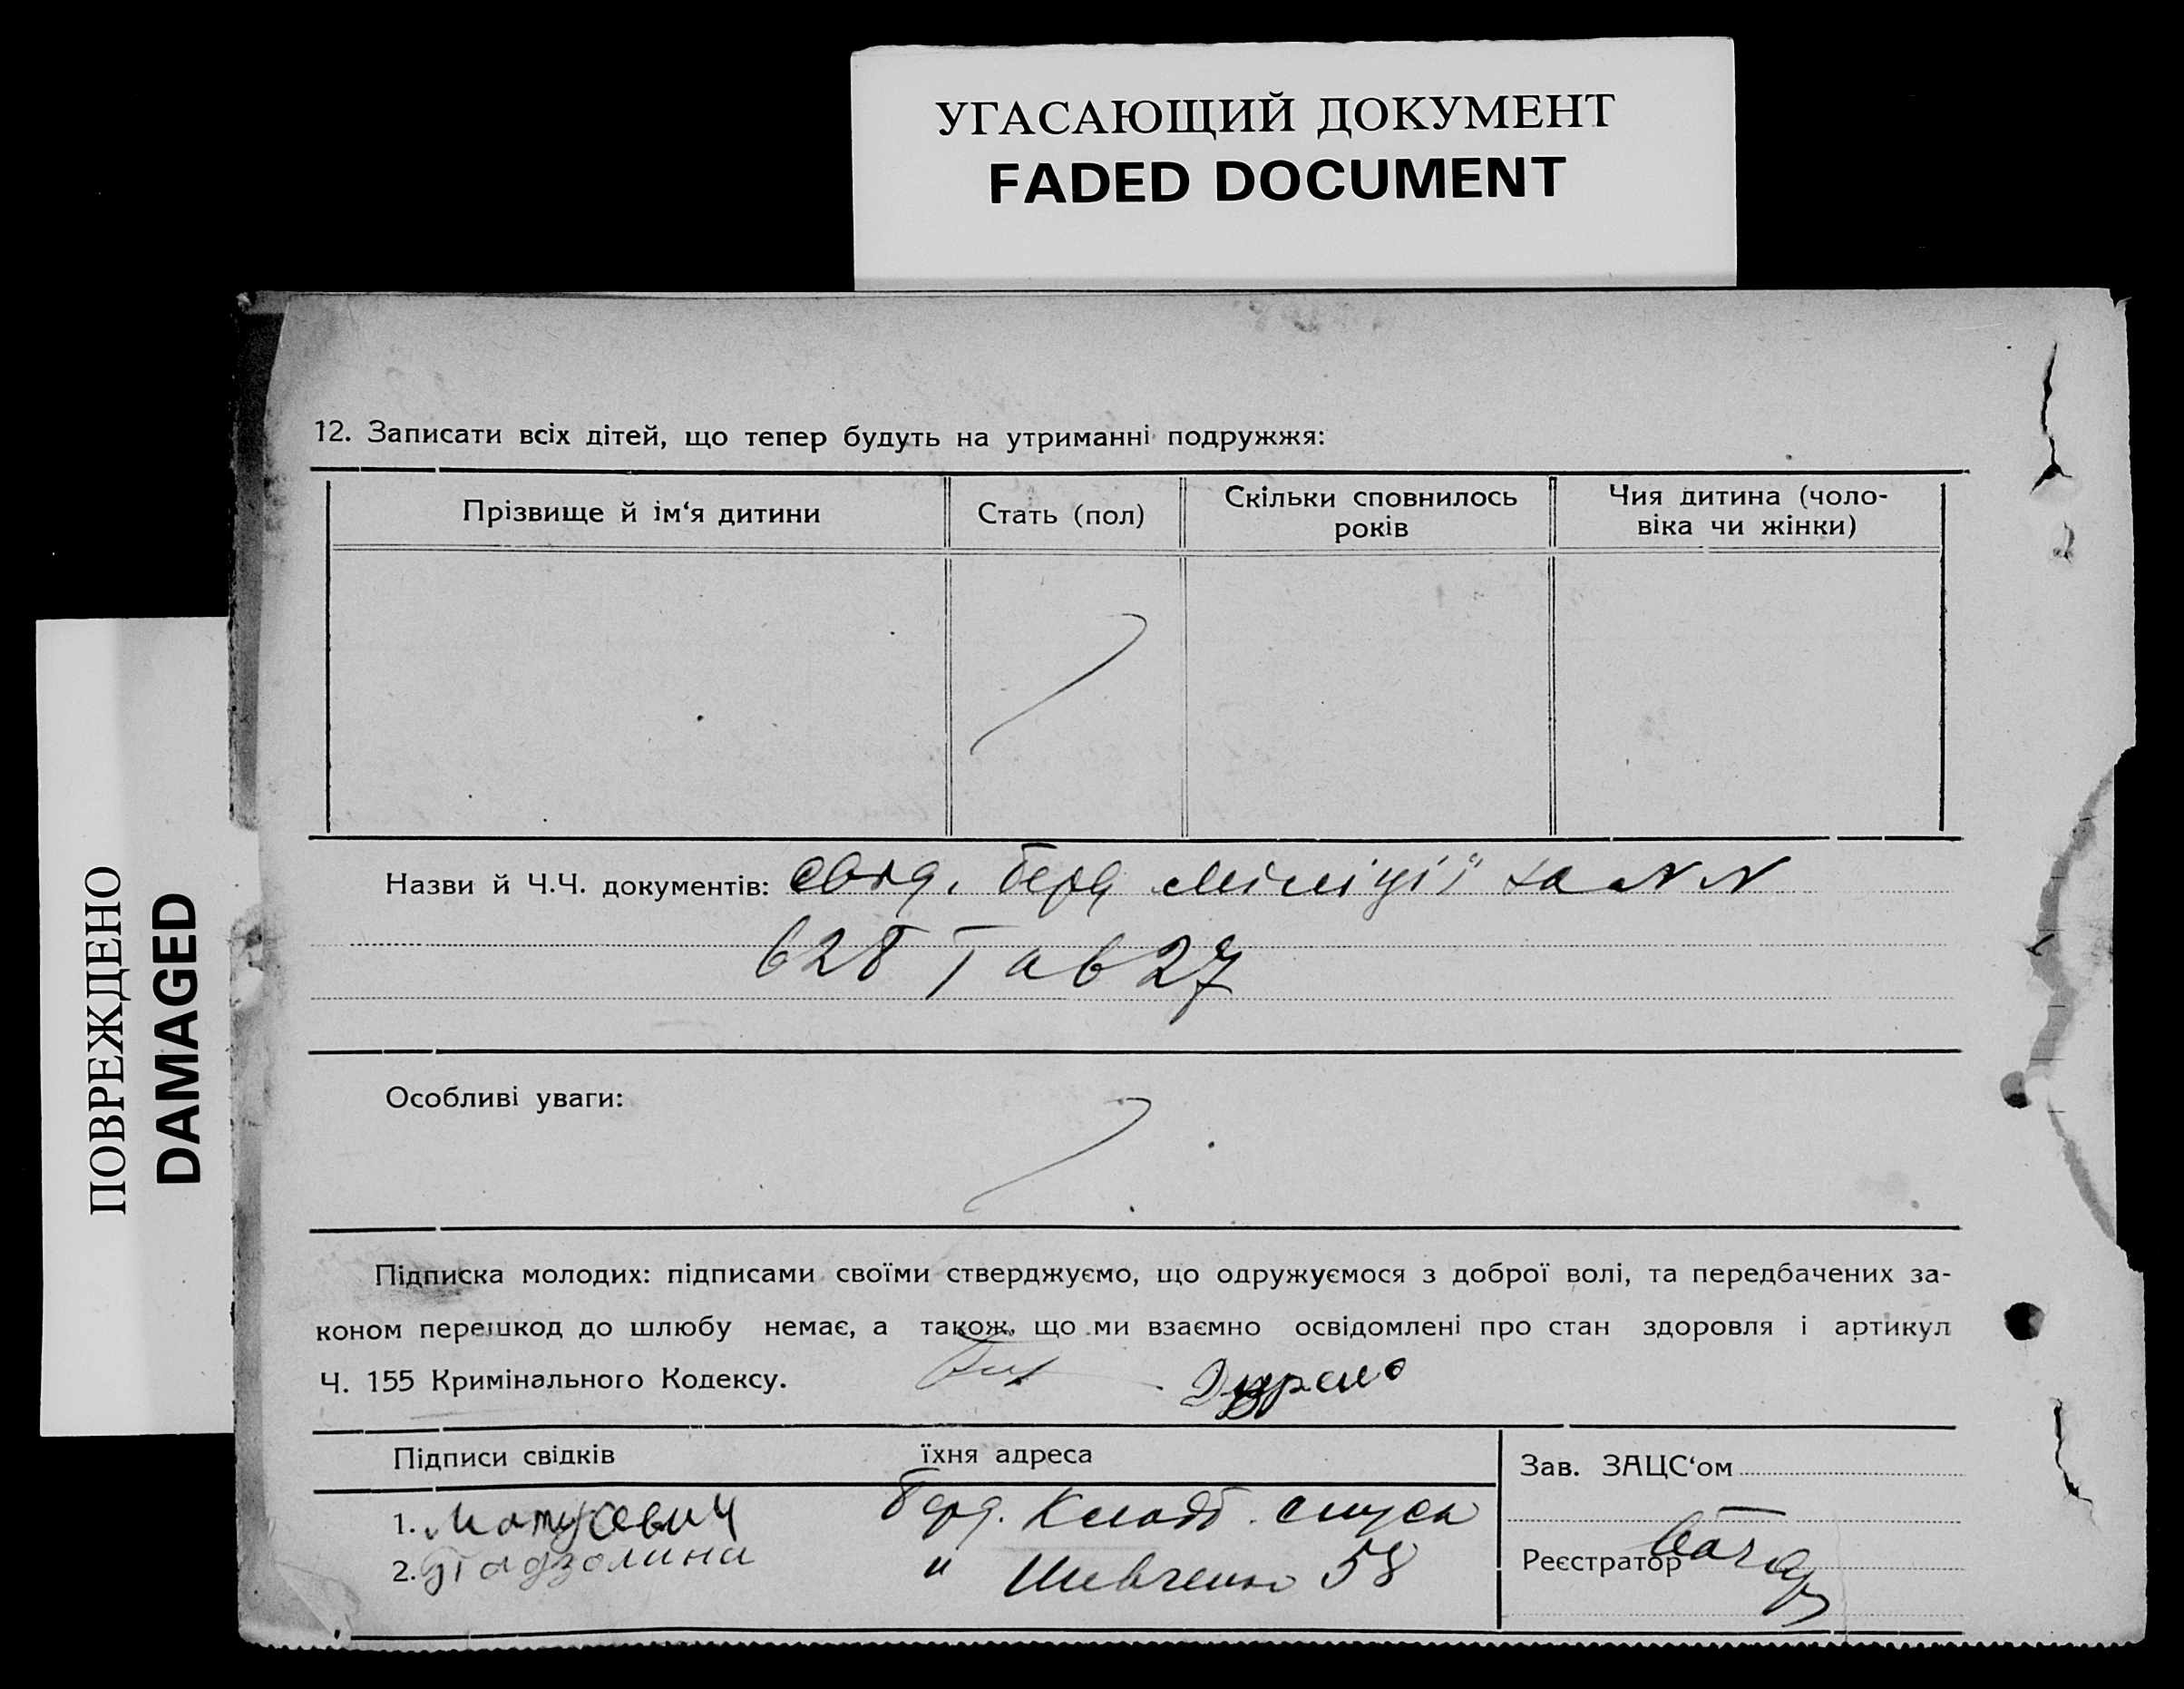 УГАСАЮЩИЙ ДОКУМЕНТ
FADED DOCUMENT
ПОВРЕЖДЕНО
DAMAGED
12. Записати всіх дітей, що тепер будуть на утриманні подружжя:
Прізвище й ім‘я дитини
Стать (пол)
Скільки сповнилось
років
Чия дитина (чоло-
віка чи жінки)
Назви й Ч.Ч. документів: Берд Міліції за NN
628 Та 627
Особливі уваги:
Підписка молодих: підписами своїми стверджуємо, що одружуємося з доброї волі, та передбачених за-
коном перешкод до шлюбу немає, а також, що ми взаємно освідомлені про стан здоровля і артикул
Ч. 155 Кримінального Кодексу.
Підписи свідків
їхня адреса
1. Матусевич Берд. спуск
2. " Шевченко 58
Зав. ЗАЦС‘ом
Реєстратор